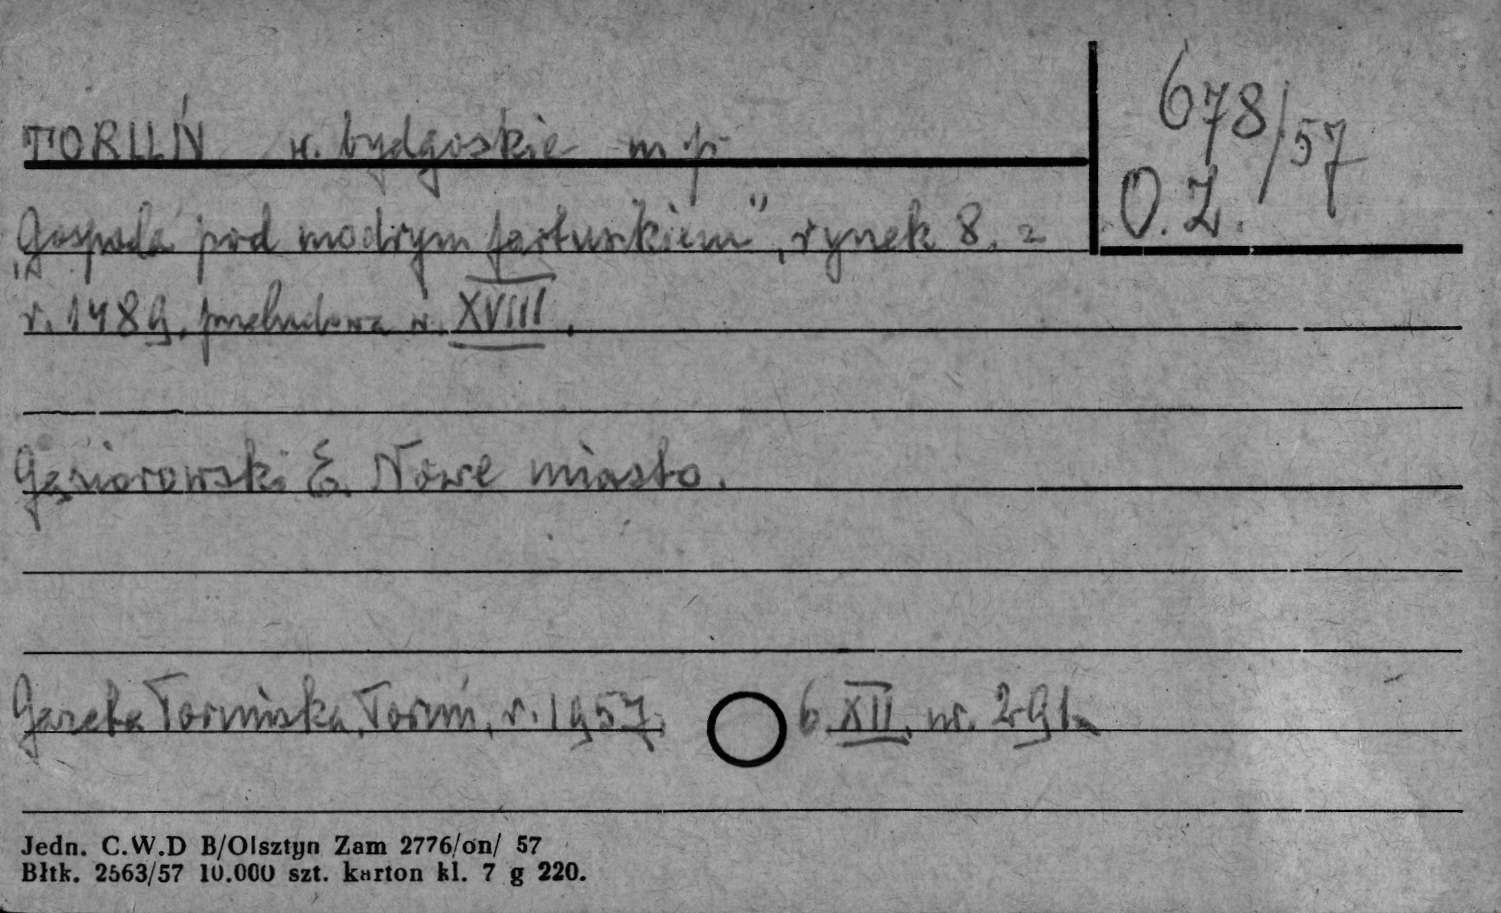 TORUŃ w. bydgoskie m p
678/57
O. Z.
„Gospoda pod modrym fartuszkiem", rynek 8. z
r. 1489, przebudowa w. XVIII.
Gąsiorowski E. Nowe miasto.
Gazeta Toruńska, Toruń, r. 1957, 6 XII, nr. 291.
Jedn. C.W.D B/Olsztyn Zam 2776/on/ 57
Błtk. 2563/57 10.000 szt. karton kl. 7 g 220.